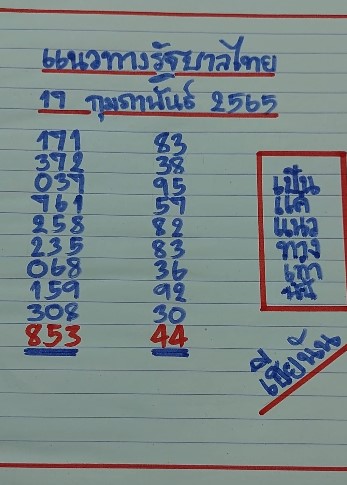 แนวทางรัฐบาลไทย
17 กุมภาพันธ์ 2565
171 83
372 38
037 95
761 57
258 82
235 83
068 36
159 92
308 30
853 44
เป็น
แค่
แนว
ทาง
เท่า
นั้น
เซียนัน